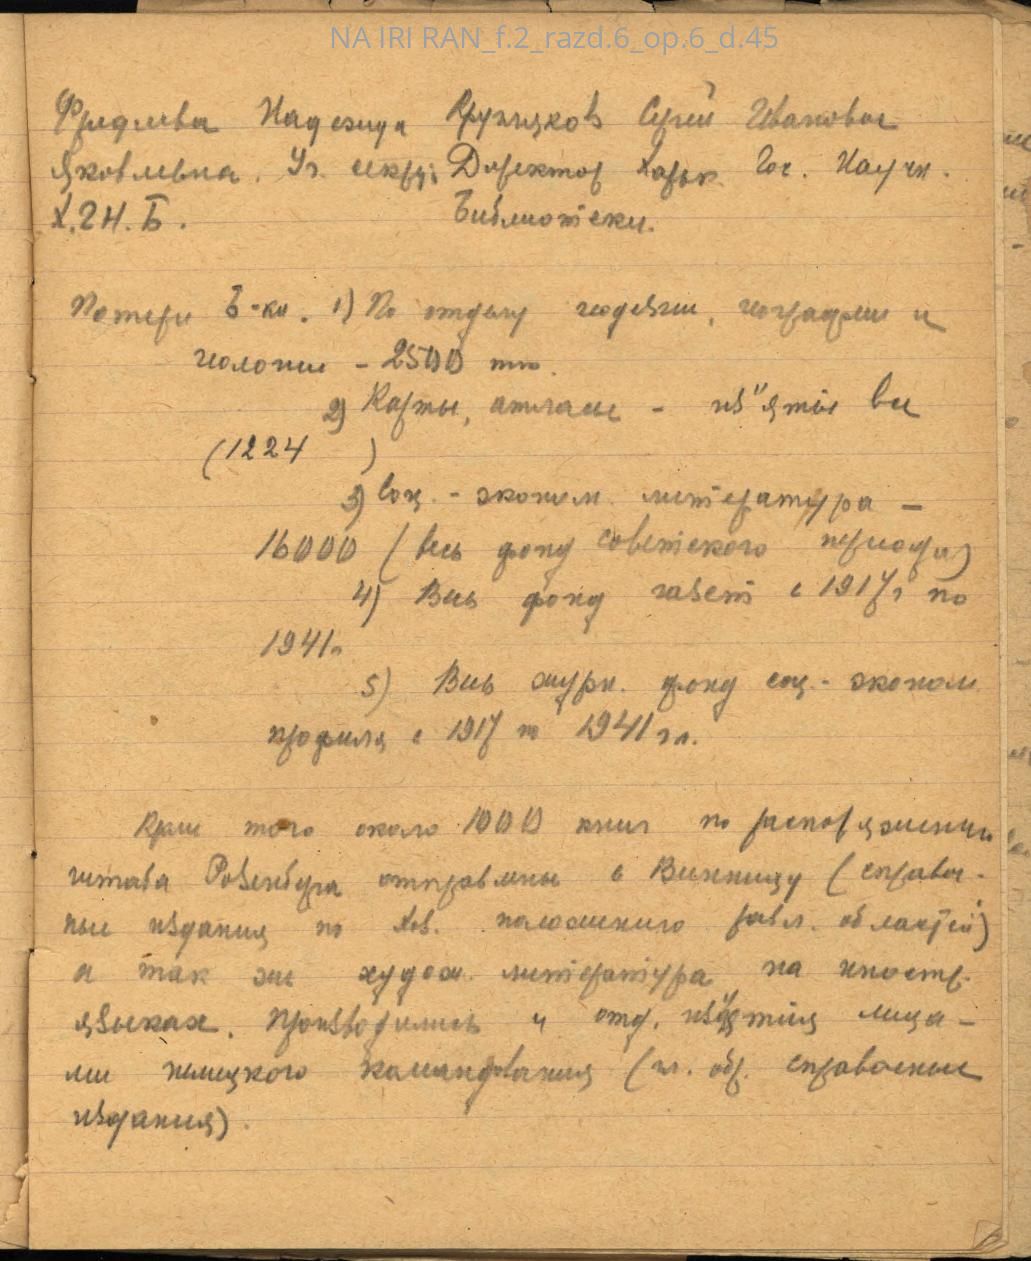 NA IRI RAN_f.2_razd.6_op.6_d.45
Фридьева Надежда Кружидков Сергей Иванович
Яковлевна. Уч. секр. Директор Харьк. Гос. Научн.
Х.Г.Н.Б. Библиотеки.
Потери б-ки. 1) По отделу геодезии, географии и
геологии – 2500 тт.
2) Карты, атласы – из"яты все
(1224 )
3) Соц. - эконом. литература –
16000 (весь фонд советского периода)
4) Весь фонд газет с 1917 г по
1941 г.
5) Весь журн. фонд соц. - эконом
профиля с 1917 по 1941 гг.
Кроме того около 1000 книг по распоряжению
штаба Розенберга отправлены в Винницу (справоч-
ные издания по хоз. положению разл. областей)
а так же худож. литература на иностр.
языках. Производились и отд. из"ятия лица-
ми немецкого командования (гл. обр. справочные
издания).